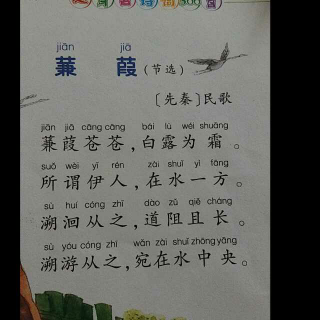 jiān jiā
蒹 葭(节选)
〔先秦〕民歌
jiān jiā cāng cāng bái lù wéi shuāng
蒹葭苍苍,白露为霜。
suǒ wèi yī rén zài shuǐ yì fāng
所谓伊人,在水一方。
sù huí cóng zhī dào zǔ qiě cháng
溯洄从之,道阻且长。
sù yóu cóng zhī wǎn zài shuǐ zhōng yāng
溯游从之,宛在水中央。